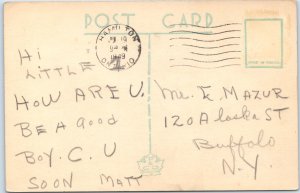 POST CARD
HAMILTON
19
1949
ONTARIO
Hi
LITTLE
HOW ARE U.
BE A good
BOY. C. U
SOON MATT
Mr. E. MAZUR
120 Alaska ST
Buffalo
N.Y.